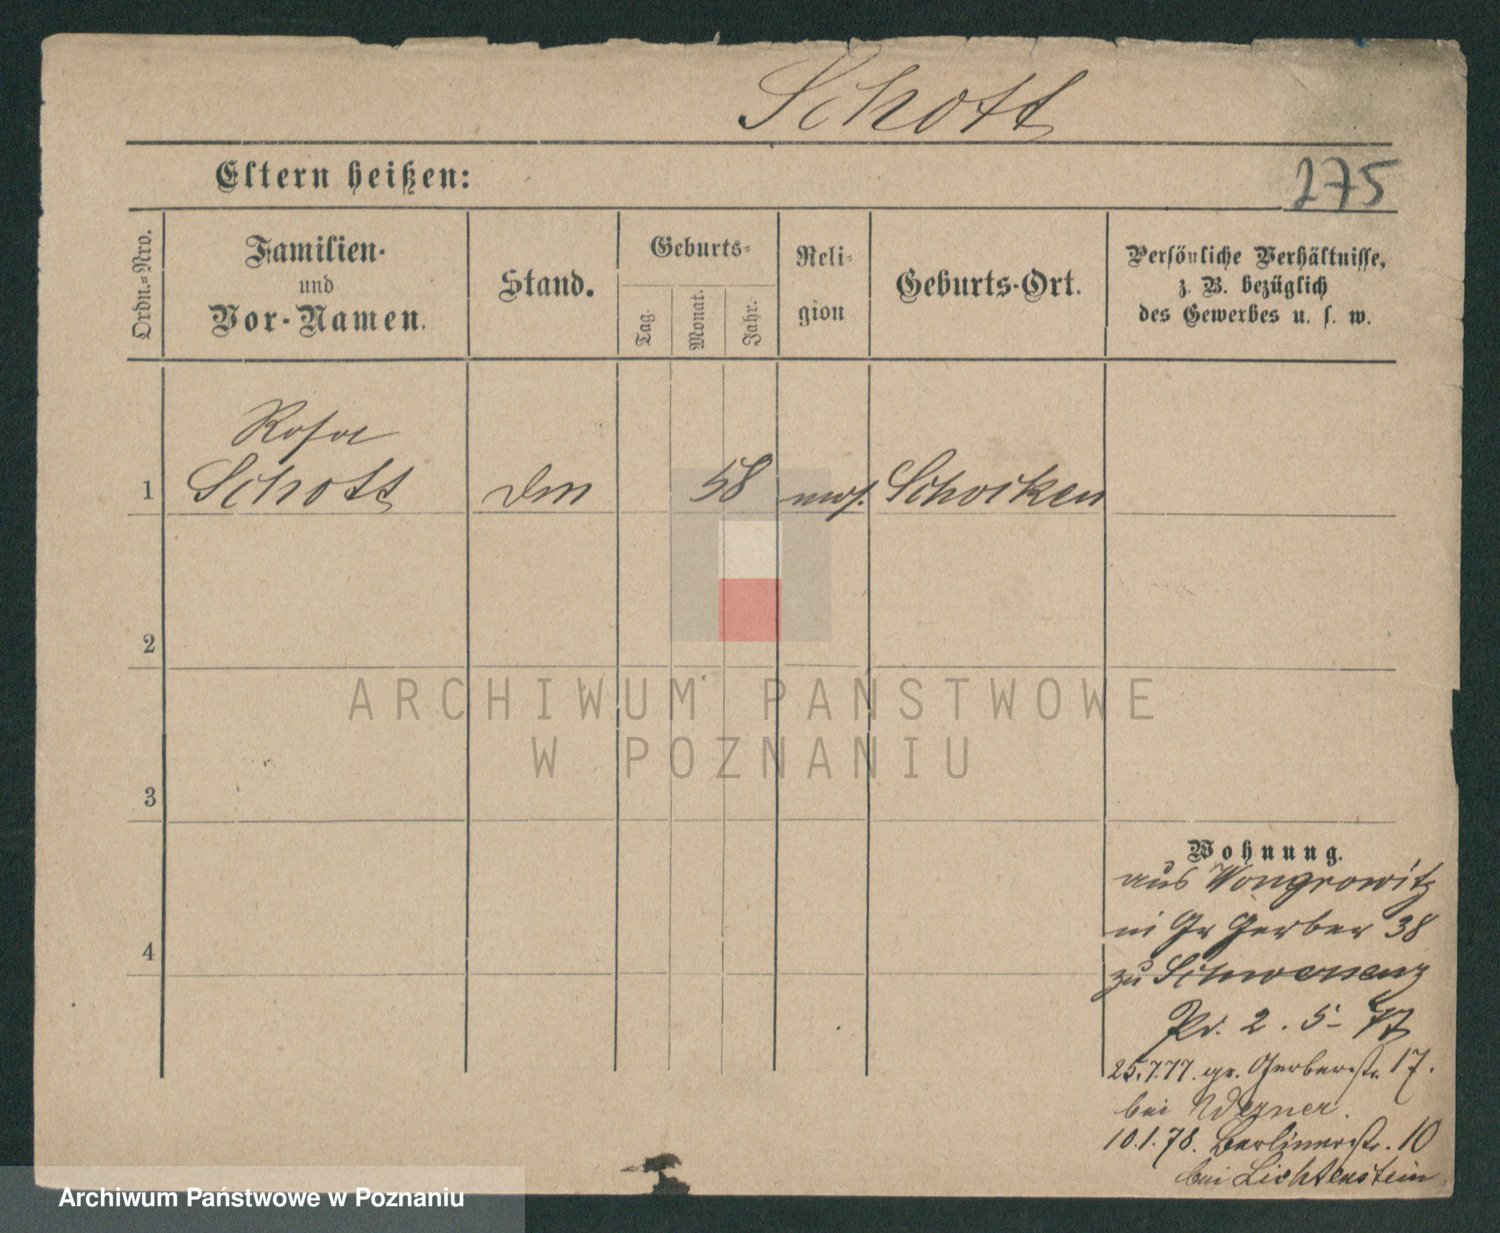 Schott
Eltern heißen:
275
Ordn.=Nro.
Familien-
und
Vor-Namen.
Stand.
Geburts-
Tag.
Monat.
Jahr.
Reli-
gion
Geburts-Ort.
Persönliche Verhältnisse,
z. B. bezüglich
des Gewerbes u. s. w.
Rosa
1 Schott 58 mos. Schocken
2
3
4
ARCHIWUM PAŃSTWOWE
W POZNANIU
Wohnung.
aus Wongrowitz
in Gr Gerber 38
zu Schwersenz
Pr. 2. 5- 77
25.7.77. gr. Gerberstr. 17.
bei Werner.
10.1.78. Berlinerstr. 10
bei Lichtenstein
Archiwum Państwowe w Poznaniu